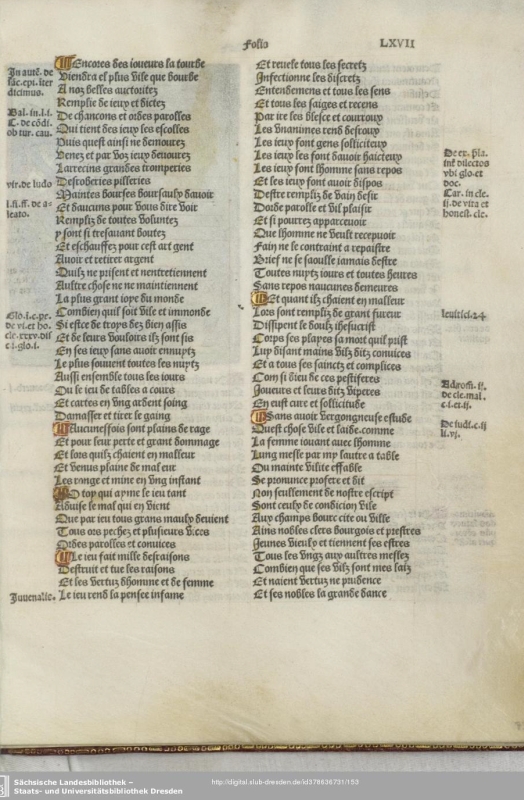 Folio LXVII
Encores des ioueurs la tourbe
Viendra el plus vile que bourbe
A noz belles auctoritez
Remplie de ieux et dictez
De chancons et ordes parolles
Qui tient des ieux les escolles
Puis quest ainsi ne demourez
Venez et par voz ieux deuourez
Larrecins grandes tromperies
Desroberies pilleries
Maintes bourses boursaulx dauoir
Et daucuns pour vous dire voir
Remplis de toutes voluntez
y sont si tresauant boutez
Et eschauffez pour cest art gent
Auoir et retirer argent
Quilz ne prisent et nentretiennent
Aultre chose ne ne maintiennent
La plus grant ioye du monde
Combien quil soit vile et immonde
Si est ce de troys dez bien assis
Et de leurs vouloirs ilz sont sis
En ses ieux sans auoir ennuytz
Le plus souuent toutes les nuytz
Aussi ensemble tous les iours
Ou le ieu de tables a cours
Et cartes en vng ardent soing
Damasser et tirer le gaing
Aucuneffois sont plains de rage
Et pour leur perte et grant dommage
Et lors quilz chaient en malleur
Et venus plaine de mal eur
Les range et mine en vng instant
O toy qui ayme le ieu tant
Aduise le mal qui en vient
Que par ieu tous grans maulx deuient
Tous ors pechez et plusieurs vices
Ordes parolles et conuices
Le ieu fait mille desraisons
Destruit et tue les raisons
Et les vertuz dhomme et de femme
Le ieu rend la pensee infame
Et reuele tous les secretz
Infectionne les discretz
Entendemens et tous les sens
Et tous les saiges et recens
Par ire les blesce et courroux
Les vnanimes rend desroux
Les ieux sont gens solliciteux
Les ieux les font dauoir haicteux
Les ieux sont lhomme sans repos
Et les ieux sont auoir dispos
Destre remplis de vain desir
Dorde parolle et vil plaisir
Et si pourrez apparceuoir
Que lhomme ne veult recepuoir
Fain ne le contraint a repaistre
Brief ne se saoulle iamais destre
Toutes nuytz iours et toutes heures
Sans repos naucunes demeures
Et quant ilz chaient en malleur
Lors sont remplis de grant fureur
Dissipent le doulx ihesucrist
Corps ses playes sa mort quil prist
Luy disant mains vilz ditz conuices
Et a tous ses sainctz et complices
Com si dieu de ces pestiferes
Joueurs et leurs ditz viperes
En eust cure et sollicitude
Sans auoir vergongneuse estude
Quest chose vile et laide comme
La femme iouant auec lhomme
Lung mesle par my lautre a table
Ou mainte vilite effable
Se pronunce profere et dit
Non seullement de nostre escript
Sont ceulx de condicion vile
Aux champs bourc cite ou ville
Ains nobles clers bourgois et prestres
Jeunes vieulx et tiennent ses estres
Tous les vngz aux aultres meslez
Combien que ses vilz sont mes laiz
Et naient vertuz ne prudence
Et ses nobles la grande dance
vir. de ludo
leuitici. 24
Juuenalis.
Sächsische Landesbibliothek –
Staats- und Universitätsbibliothek Dresden
http://digital.slub-dresden.de/id378636731/153